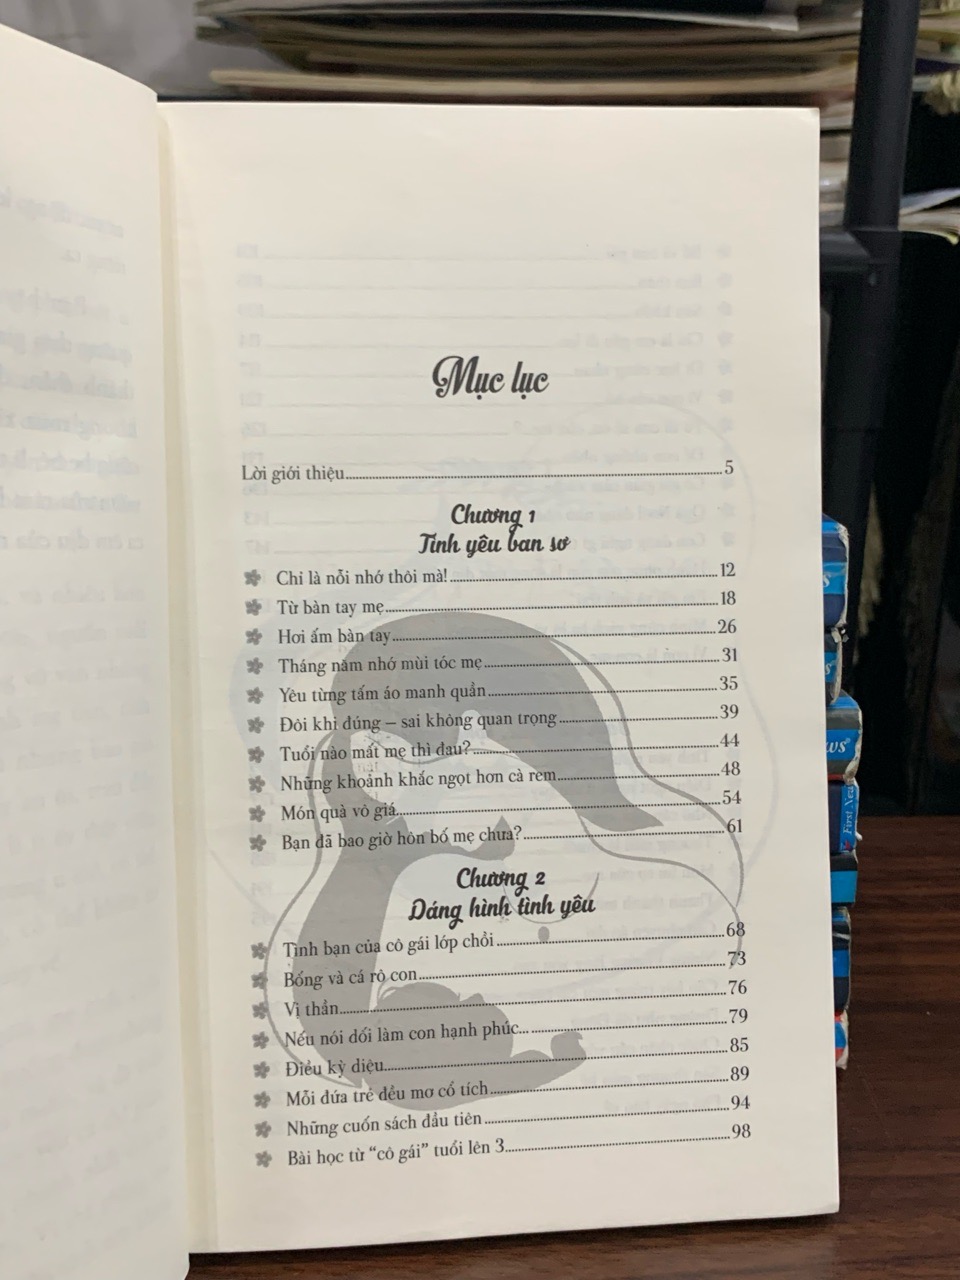 Mục lục
Lời giới thiệu 5
Chương 1
Tình yêu ban sơ
Chỉ là nỗi nhớ thôi mà! 12
Từ bàn tay mẹ 18
Hơi ấm bàn tay 26
Tháng năm nhớ mùi tóc mẹ 31
Yêu từng tấm áo manh quần 35
Đôi khi đúng – sai không quan trọng 39
Tuổi nào mất mẹ thì đau? 44
Những khoảnh khắc ngọt hơn cà rem 48
Món quà vô giá 54
Bạn đã bao giờ hôn bố mẹ chưa? 61
Chương 2
Dáng hình tình yêu
Tình bạn của cô gái lớp chồi 68
Bống và cá rô con 73
Vị thần 76
Nếu nói dối làm con hạnh phúc... 79
Điều kỳ diệu 85
Mỗi đứa trẻ đều mơ cổ tích 89
Những cuốn sách đầu tiên 94
Bài học từ “cô gái” tuổi lên 3 98
First News